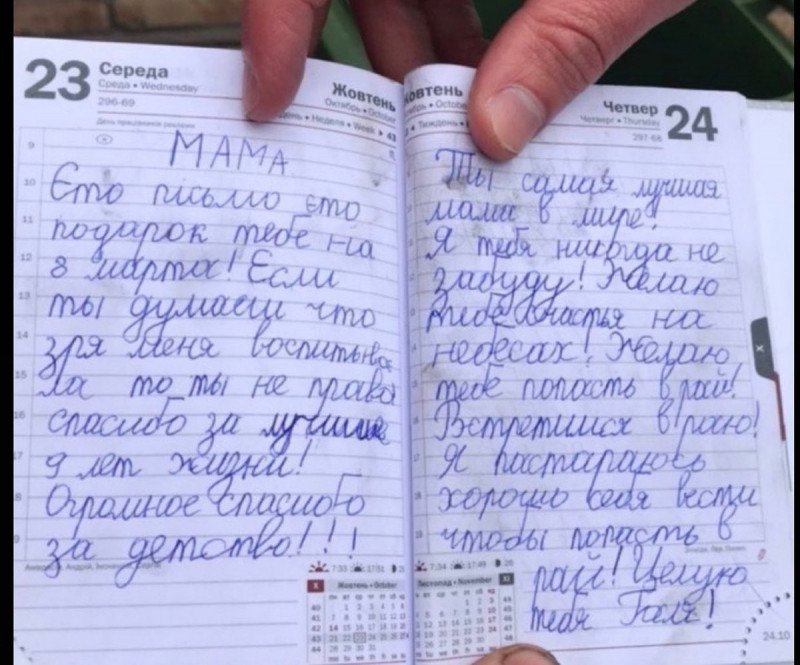 23 Середа
Среда • Wednesday
296-69
Жовтень
Октябрь • October
Неделя • Week 43
МАМА
Єто письмо єто
подарок тебе на
8 марта! Если
ты думаеш что
зря меня воспитыва
ла то ты не права
спасибо за лучшие
9 лет жизни!
Огромное спасибо
за детство!!!
7:33 17:51
Жовтень • October
Четвер 24
Четверг • Thursday
297-68
Жовтень
Тиждень
Ты самая лучшая
мама в мире!
Я тебя никогда не
забуду! Желаю
тебе счастья на
небесах! Желаю
тебе попасть в рай!
Встретимся в раю!
Я пастараюсь
хорошо себя вести
чтобы попасть в
рай! Целую
тебя Галя!
7:34 17:49
Листопад • November
X
XI
24.10